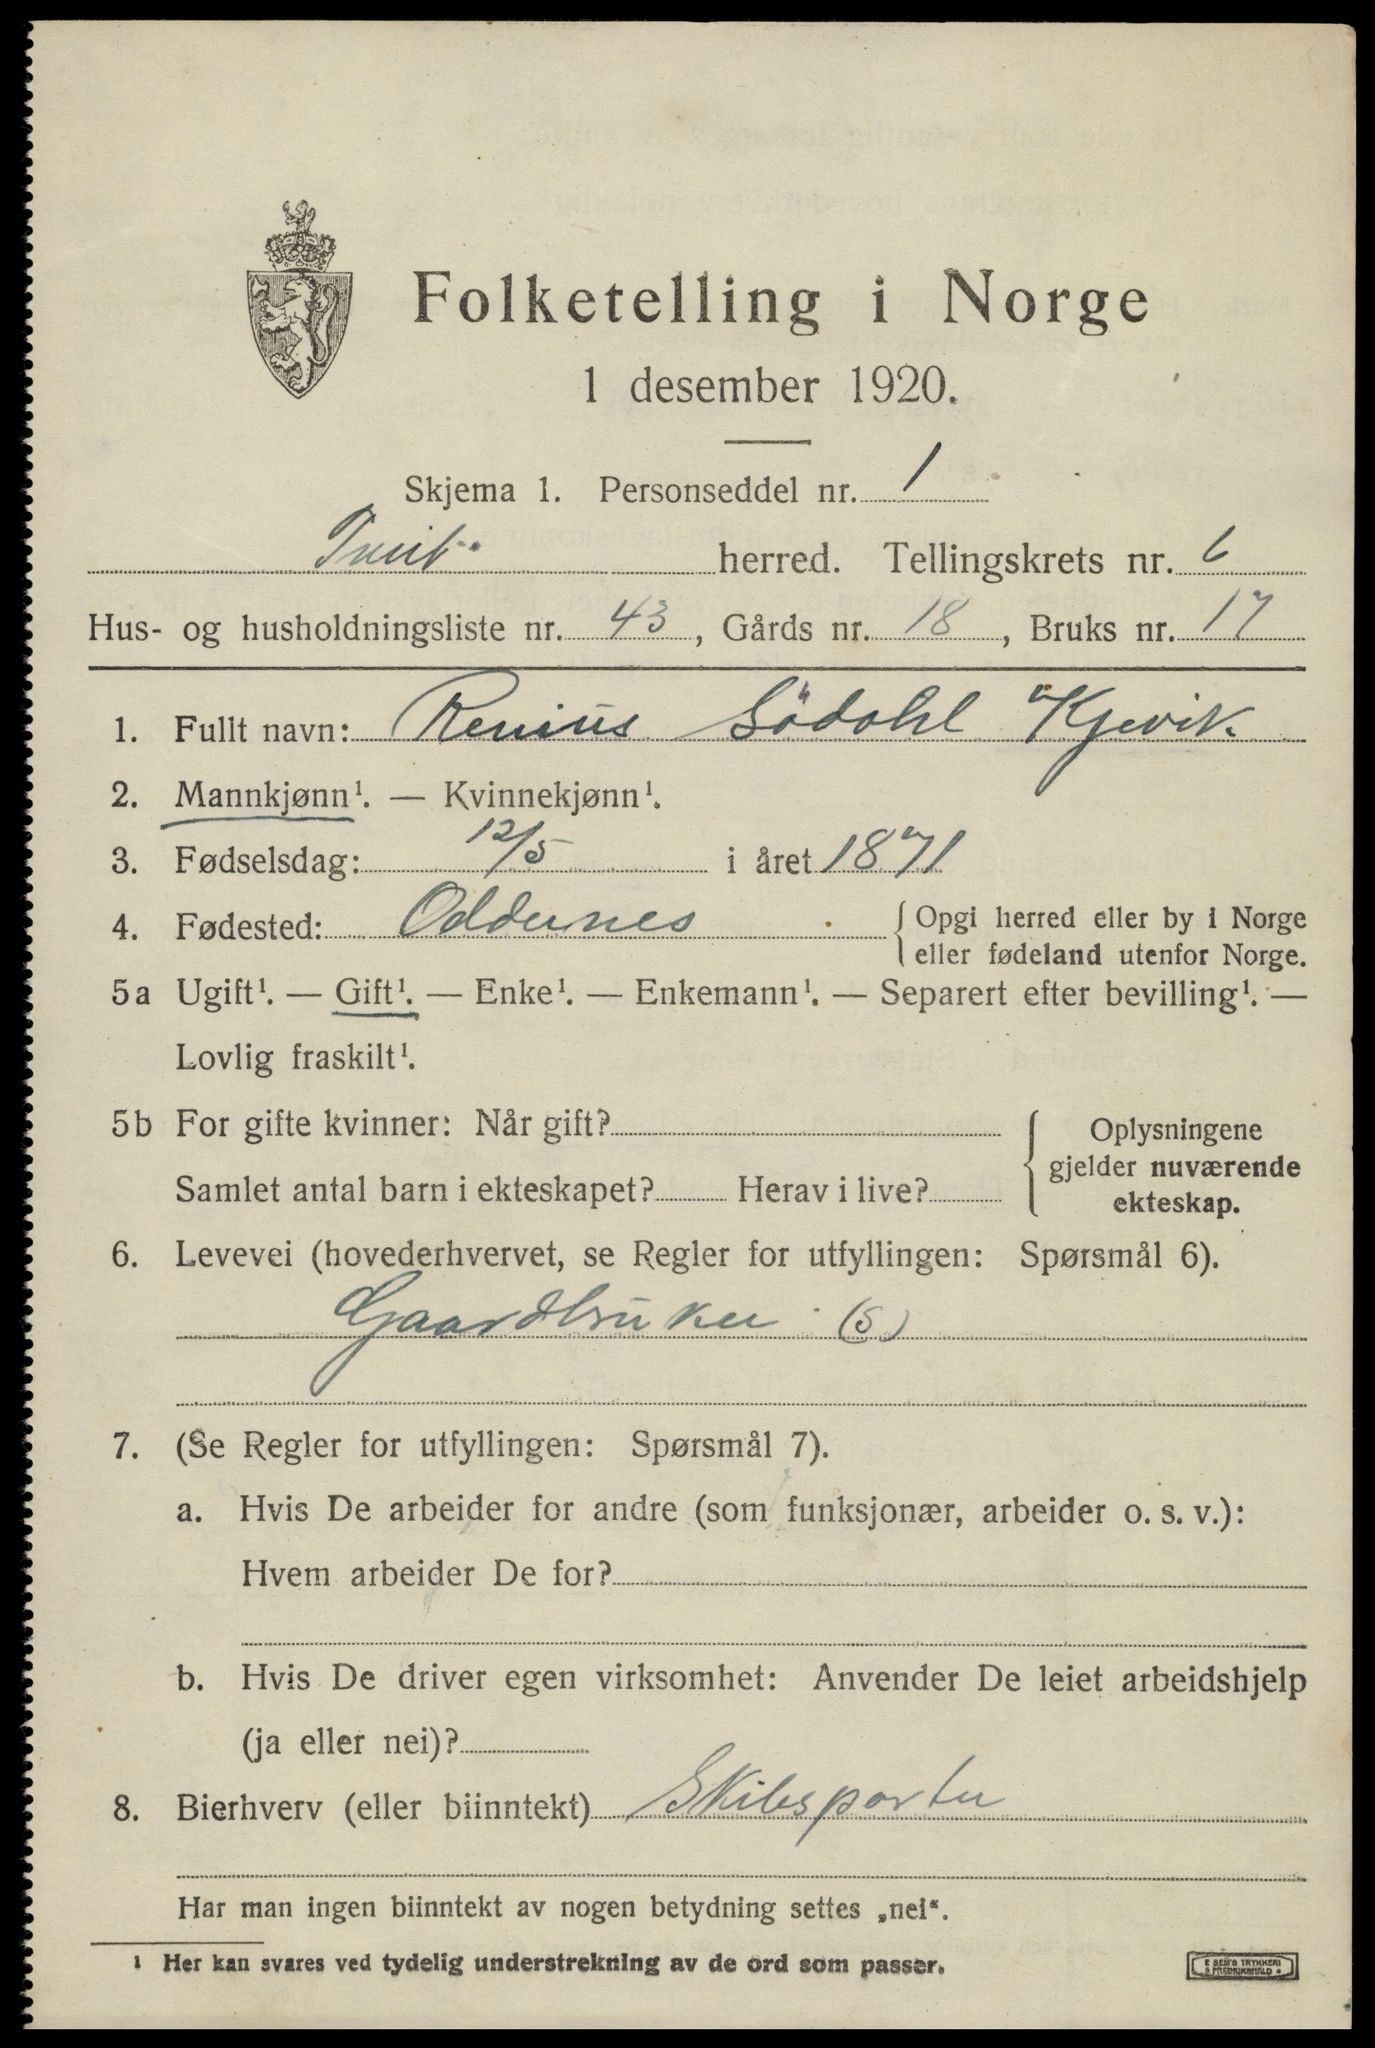 Folketelling i Norge
1 desember 1920.
Skjema 1. Personseddel nr. 1
Tveit herred. Tellingskrets nr. 6
Hus- og husholdningsliste nr. 43, Gårds nr. 18, Bruks nr. 17
1. Fullt navn: Renius Södahl Kjevik.
2. Mannkjønn¹. — Kvinnekjønn¹.
3. Fødselsdag: 12/5 i året 1871
4. Fødested: Oddernes { Opgi herred eller by i Norge
eller fødeland utenfor Norge.
5a Ugift¹. — Gift¹. — Enke¹. — Enkemann¹. — Separert efter bevilling¹. —
Lovlig fraskilt¹.
5b For gifte kvinner: Når gift? { Oplysningene
gjelder nuværende
Samlet antal barn i ekteskapet? Herav i live?
ekteskap.
6. Levevei (hovederhvervet, se Regler for utfyllingen: Spørsmål 6).
Gaardbruker (S)
7. (Se Regler for utfyllingen: Spørsmål 7).
a. Hvis De arbeider for andre (som funksjonær, arbeider o. s. v.):
Hvem arbeider De for?
b. Hvis De driver egen virksomhet: Anvender De leiet arbeidshjelp
(ja eller nei)?
8. Bierhverv (eller biinntekt) Skibsparter
Har man ingen biinntekt av nogen betydning settes „nei“.
¹ Her kan svares ved tydelig understrekning av de ord som passer.
E SEM'S TRYKKERI
FREDRIKSHALD